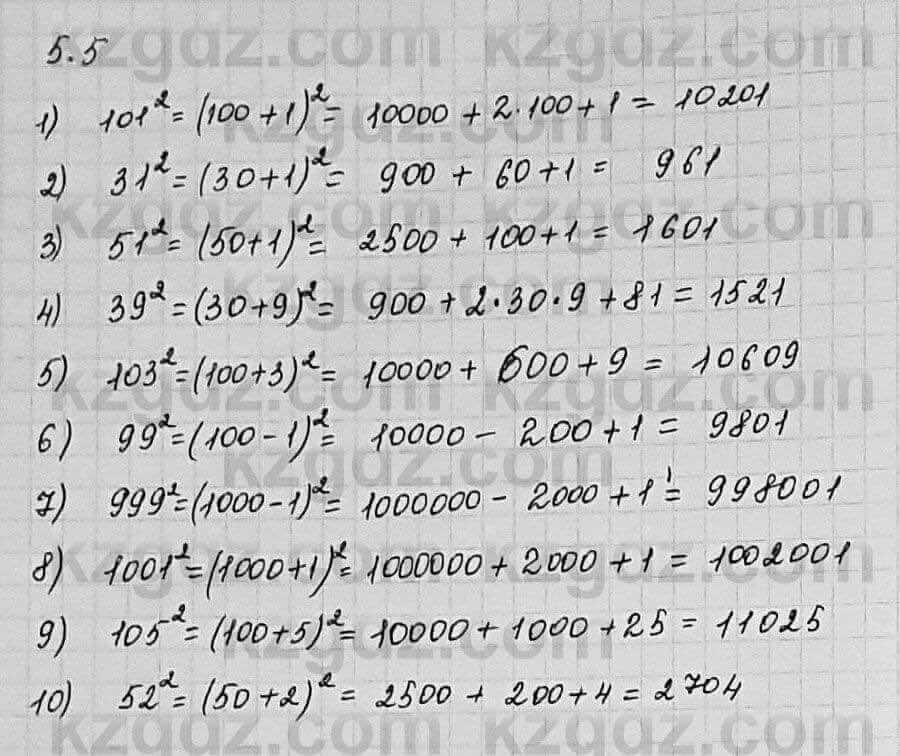 5.5
1) 101² = (100 + 1)² = 10000 + 2·100 + 1 = 10201
2) 31² = (30 + 1)² = 900 + 60 + 1 = 961
3) 51² = (50 + 1)² = 2500 + 100 + 1 = 1601
4) 39² = (30 + 9)² = 900 + 2·30·9 + 81 = 1521
5) 103² = (100 + 3)² = 10000 + 600 + 9 = 10609
6) 99² = (100 - 1)² = 10000 - 200 + 1 = 9801
7) 999² = (1000 - 1)² = 1000000 - 2000 + 1 = 998001
8) 1001² = (1000 + 1)² = 1000000 + 2000 + 1 = 1002001
9) 105² = (100 + 5)² = 10000 + 1000 + 25 = 11025
10) 52² = (50 + 2)² = 2500 + 200 + 4 = 2704
kzgaz.com